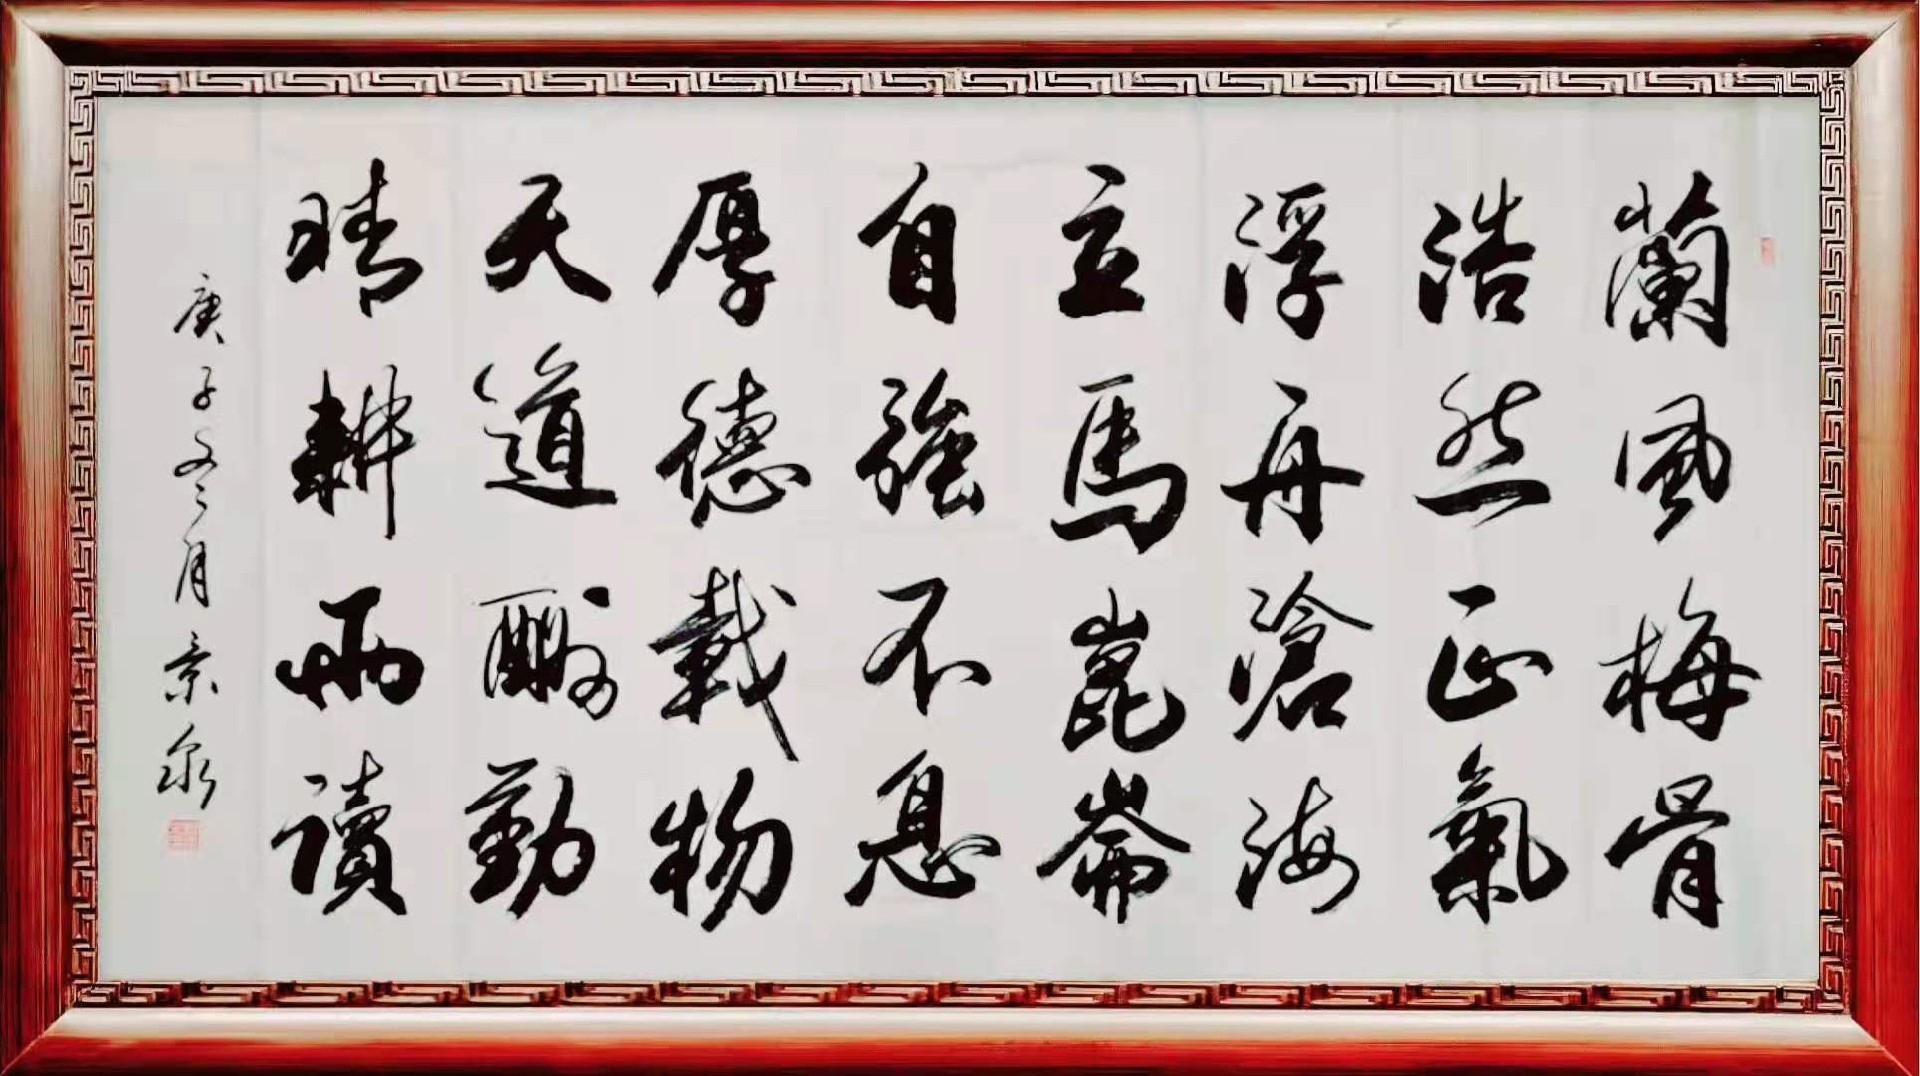 蘭風梅骨
浩然正氣
浮舟滄海
立馬崑崙
自強不息
厚德載物
天道酬勤
晴耕雨讀
庚子冬月景泉